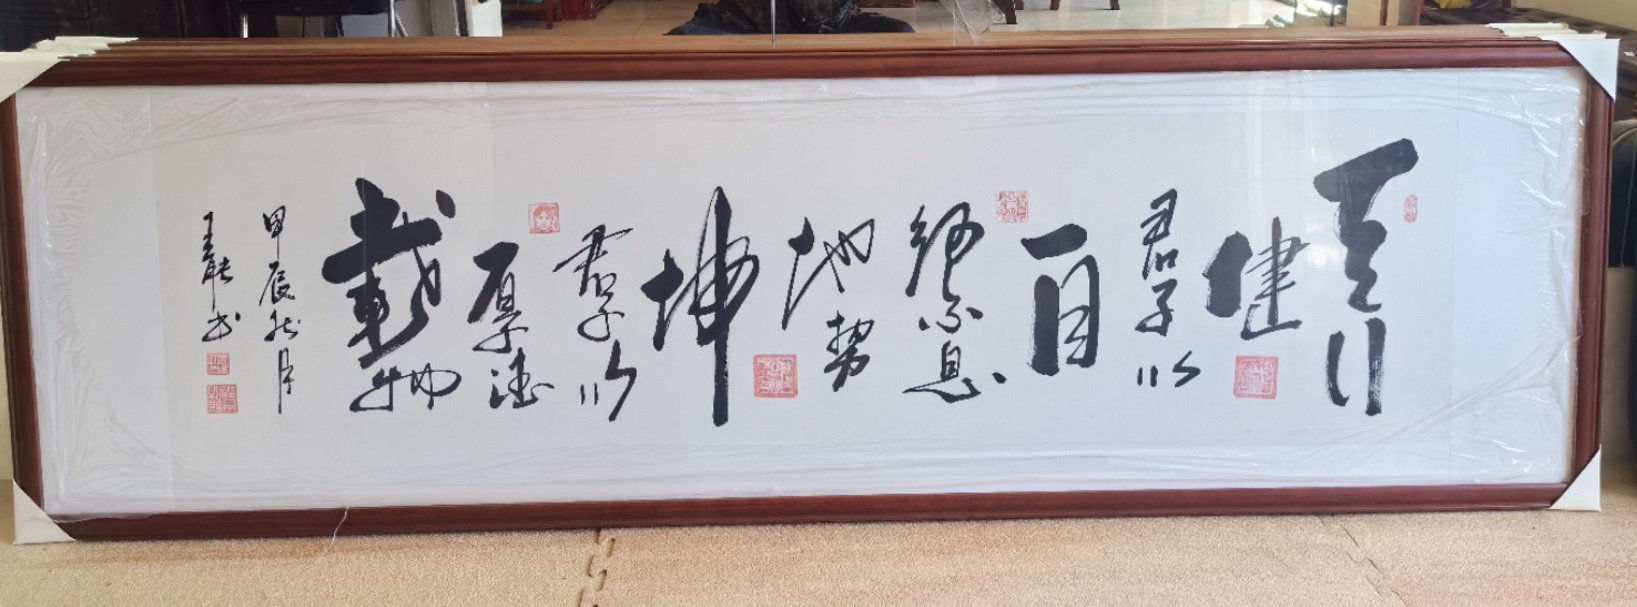 天行
健
君子以
自
强不息
地势
坤
君子以
厚德
載物
甲辰秋月
王 书